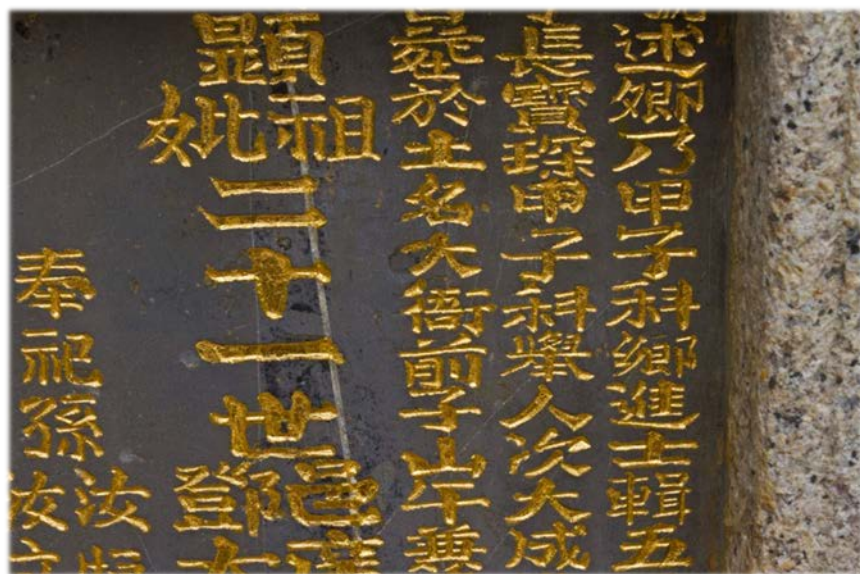 述卿乃甲子科鄉進士輯五
長寶琛甲子科舉人次大成
塟於土名大衙前子山午兼
顯
祖
妣
二十一世
邑
鄧
奉祀孫
汝
汝